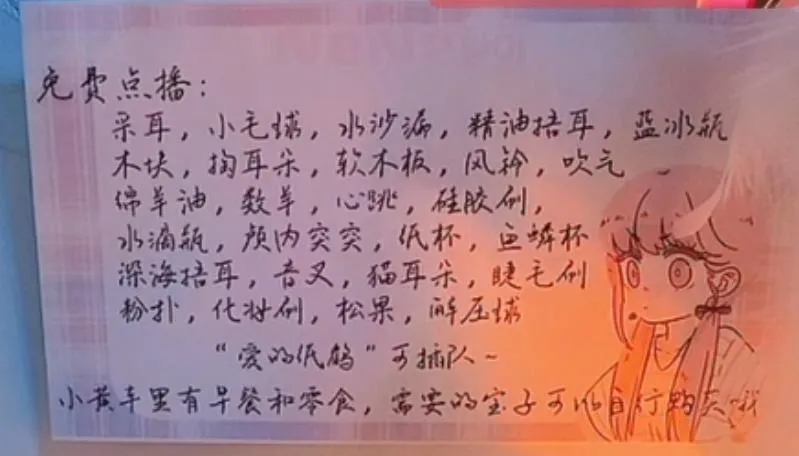 免费点播：
采耳，小毛球，水沙漏，精油捂耳，蓝冰瓶
木块，掏耳朵，软木板，风铃，吹气
绵羊油，数羊，心跳，硅胶刷，
水滴瓶，颅内突突，纸杯，鱼鳞杯
深海捂耳，音叉，猫耳朵，睫毛刷
粉扑，化妆刷，松果，解压球
“爱的纸鹤”可插队~
小黄车里有早餐和零食，需要的宝子可以自行购买哦